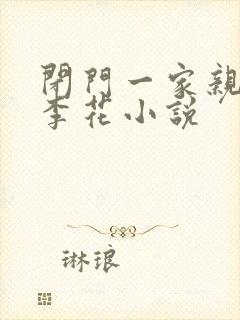 閉門一家親
李花小說
琳琅